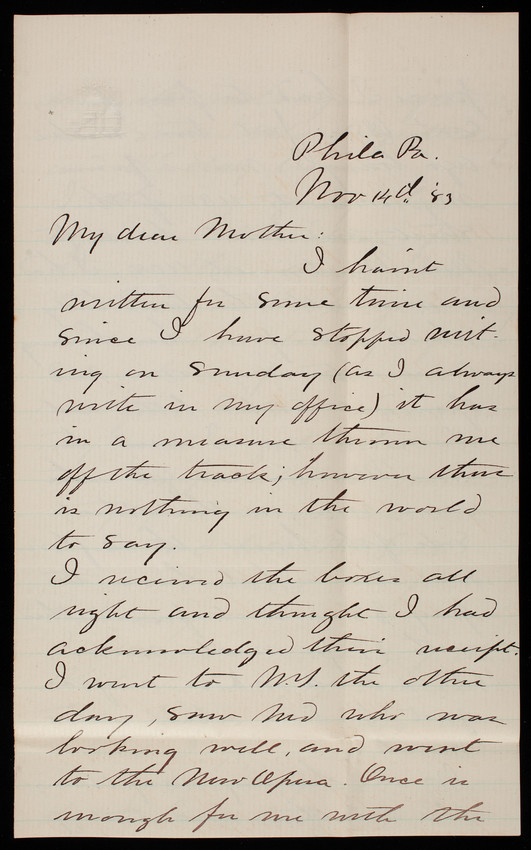 Phila Pa.
Nov 14th '83
My dear Mother:
I haint
written for some time and
since I have stopped writ-
ing on Sunday (as I always
write in my office) it has
in a measure thrown me
off the track; however there
is nothing in the world
to say.
I received the boxes all
right and thought I had
acknowledged their receipt.
I went to N.Y. the other
day, saw Ned who was
looking well, and went
to the New Opera. Once is
enough for me with the